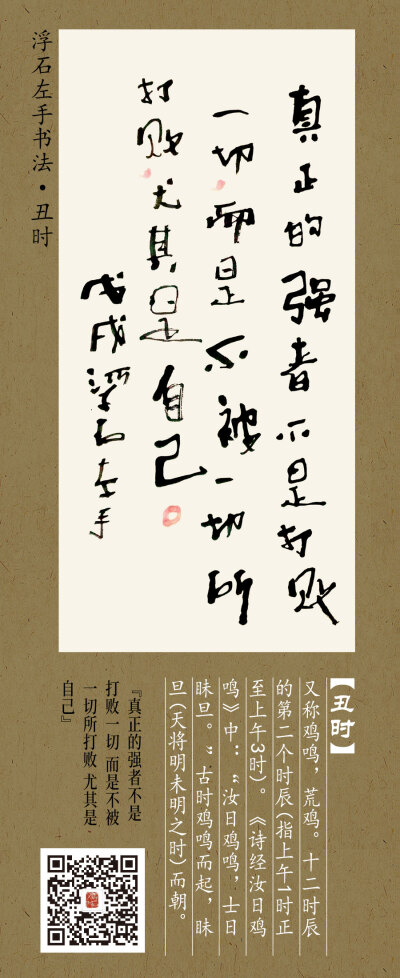 浮石左手书法·丑时
真正的强者不是打败
一切而是不被一切所
打败尤其是自己
戊戌浮石左手
【丑时】
又称鸡鸣，荒鸡。十二时辰
的第二个时辰(指上午1时正
至上午3时)。《诗经汝日鸡
鸣》中：“汝日鸡鸣，士日
昧旦。”古时鸡鸣而起，昧
旦(天将明未明之时)而朝。
『真正的强者不是
打败一切 而是不被
一切所打败 尤其是
自己』